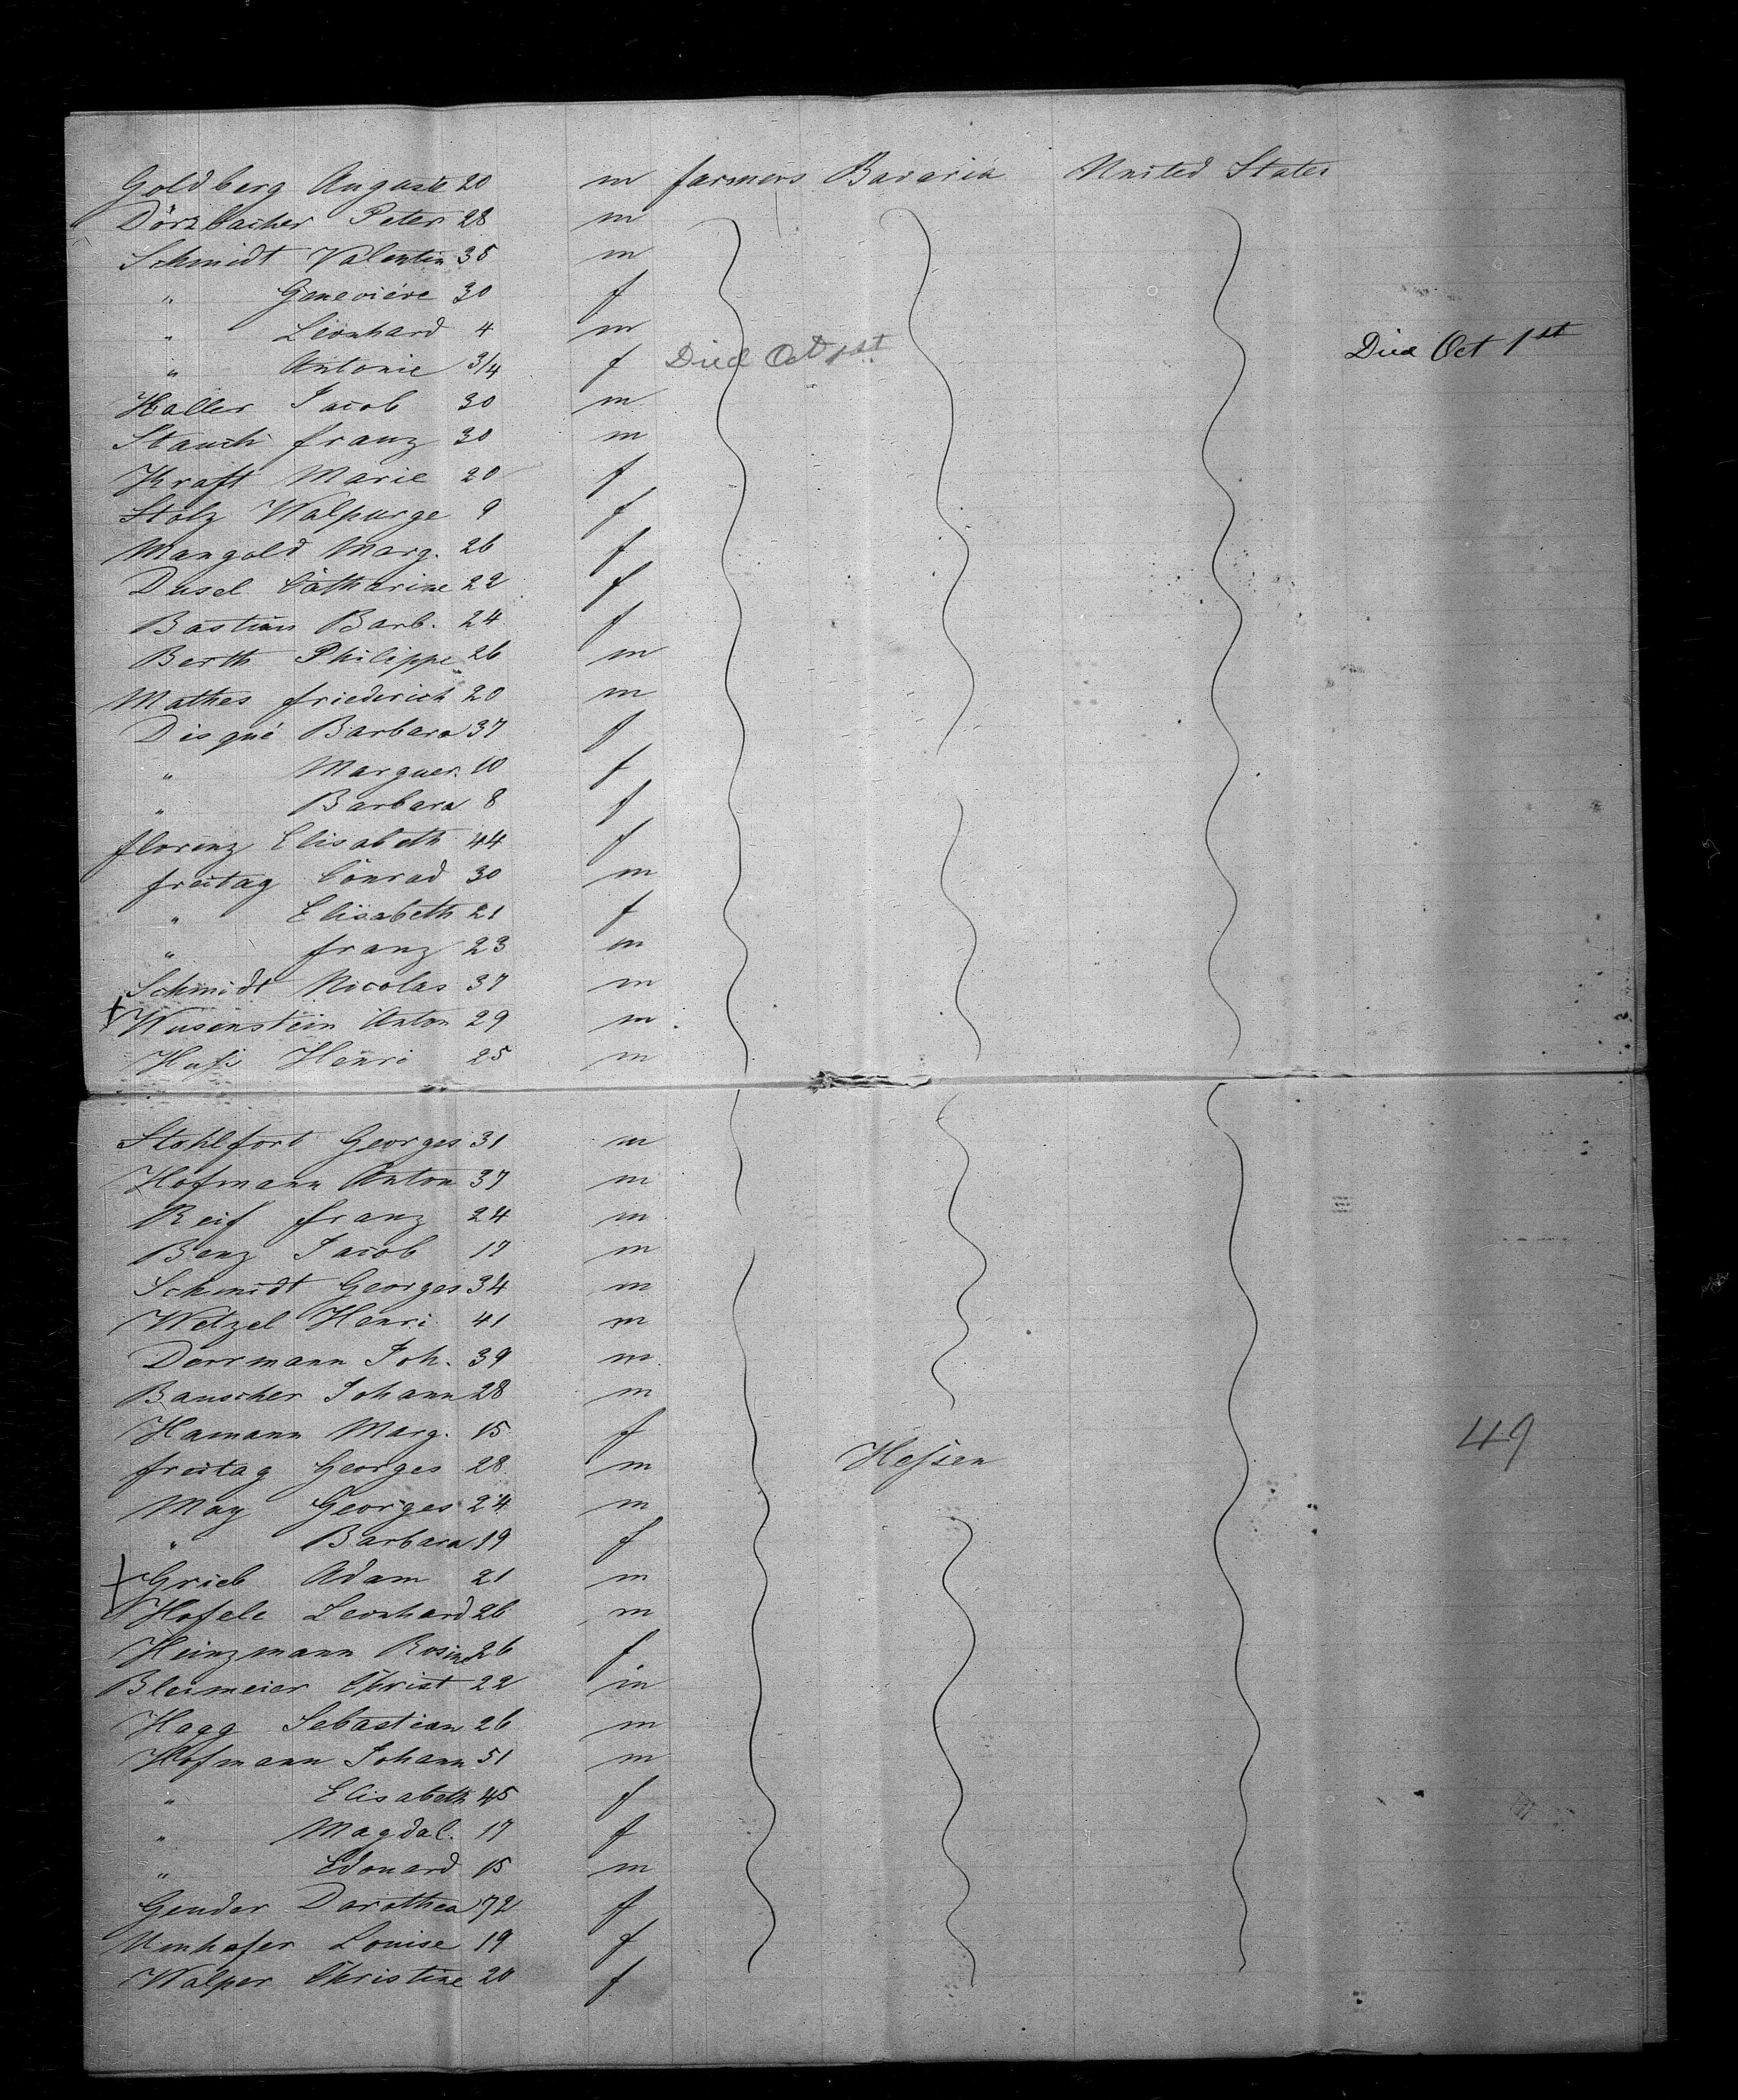 Goldberg Auguste 20 m farmers Bavaria United States
Dörzbacher Peter 28 m
Schmidt Valentin 35 m
" Geneviére 30 f
" Leonhard 4 m
" Antonie 3/4 f Died Oct 1st Died Oct 1st
Haller Jacob 30 m
Stauch franz 30 m
Kraft Marie 20 f
Stolz Walpurge 9 f
Mangold Marg. 26 f
Dusel Catharine 22 f
Bastian Barb. 24 f
Berth Philippe 26 m
Mathes friederich 20 m
Disqué Barbara 37 f
" Marguer. 10 f
" Barbara 8 f
florenz Elisabeth 44 f
freitag Conrad 30 m
" Elisabeth 21 f
" franz 23 m
Schmidt Nicolas 37 m
Wusenstein Anton 29 m
Henri 25 m
Stohlfort Georges 31 m
Hofmann Anton 37 m
Reif franz 24 m
Benz Jacob 17 m
Schmidt Georges 34 m
Wetzel Henri 41 m
Dorrmann Joh. 39 m
Bauscher Johann 28 m
Hamann Marg. 15 f
freitag Georges 28 m Hessen 49
May Georges 24 m
" Barbara 19 f
Grieb Adam 21 m
Hofele Leonhard 26 m
Heinzmann Rosine 26 f
Bleimeier Christ 22 m
Haag Sebastian 26 m
Hofmann Johann 51 m
" Elisabeth 45 f
" Magdal. 17 f
" Edouard 15 m
Gender Dorothea 72 f
Umhofer Louise 19 f
Walper Christine 20 f